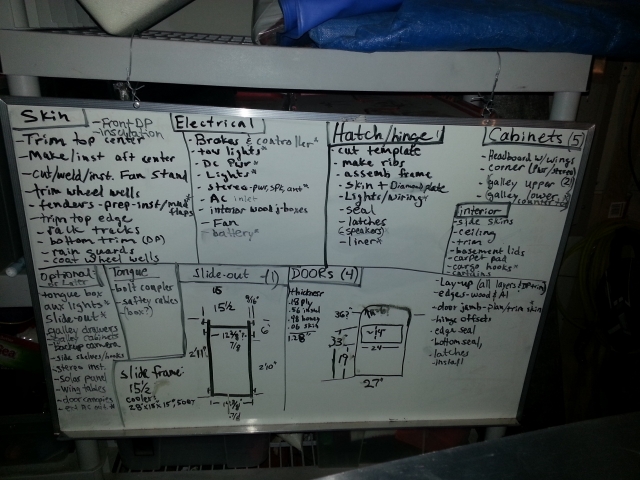 Skin
-Front DP
-insulation
-Trim top center
-Make/inst aft center
-cut/weld/inst Fan stand
-trim wheel wells
-fenders-prep-inst/mud flaps
-trim top edge
-rack tracks
-bottom trim (DP)
-rain guard
-coat wheel wells
Electrical
-Brakes & controller*
-tow lights*
-Dc Pwr*
-Lights*
-stereo-pwr, spk, ant*
-Ac inlet
-interior wood j-boxes
-Fan
-battery*
Hatch/hinge
-cut template
-make ribs
-assemb frame
-skin + Diamondplate
-Lights/wiring*
-seal
-latches
(speakers)
-liner*
Cabinets (5)
-Headboard w/wings
-corner
-galley upper (2)
-galley lower
interior
-side skins
-ceiling
-trim
-basement lids
-carpet pad
-cargo hooks*
Optional
or Later
-tongue box
-aux lights*
-slide-out*
-galley drawers
-backup camera
-stereo inst.
-solar panel
-wing tables
-door canopies
Tongue
-bolt coupler
-saftey cables
-(box?)
Slide-out (1)
15½
9/16"
6"
2'11"
2'10"
7/8
Slide frame:
15½
cooler:
DOORS (4)
thickness
.18 ply
.56 insul
.06 skin
36?
33"
19"
~14"
~24"
27"
-Lay-up (all layers)
-edges-wood & Al
-door jamb-plan/trim skin
-hinge offsets
-edge seal
-bottom seal,
-latches
-install